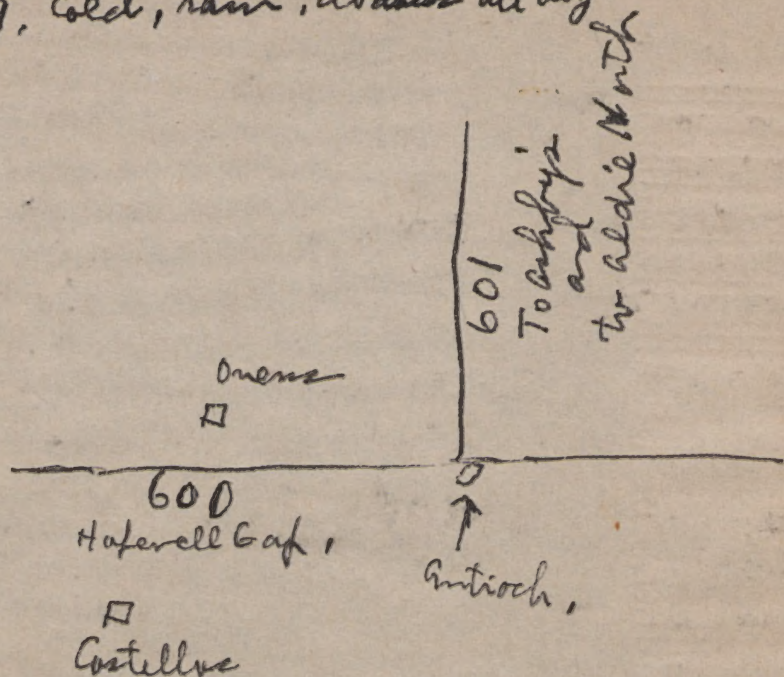 Cold, rain,
601
To Ashby's
and
to Aldie North
Owens
600
Hopewell Gap,
Antioch,
Costellos